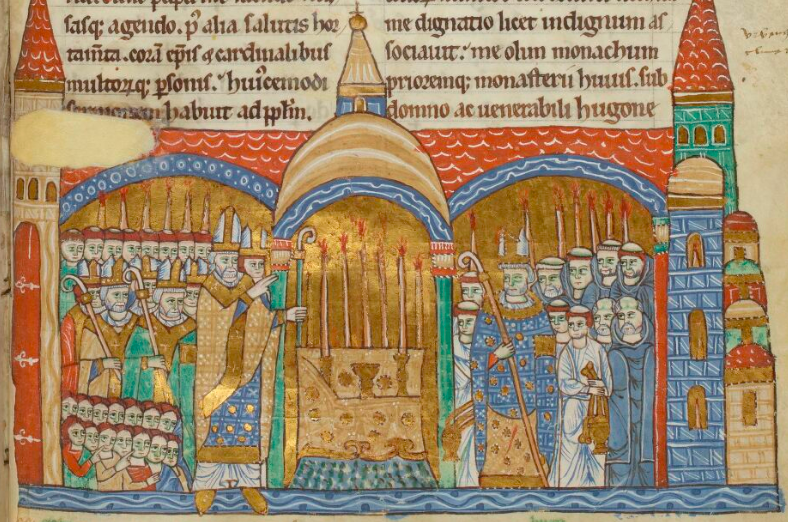 sasq; agendo. p̄ alia salutis hor
tam̄ta. corā ep̄is ⁊ cardinalibus
multorꝝq; p̄sonis. huiꝰcemodi
habuit ad pp̄lm.
me dignatio licet indignum as
sociauit. me olim monachum
prioremq; monasterii huius. sub
domno ac uenerabili hugone